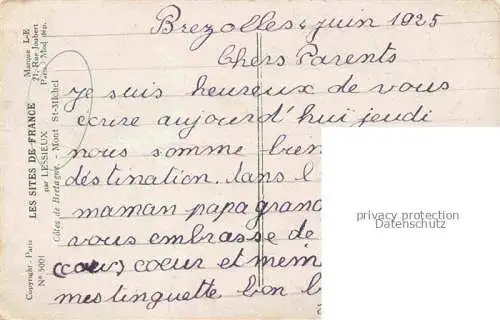 Brezolles 4 juin 1925
Chers Parents
je suis heureux de vous
ecrire aujourd'hui jeudi
nous somme bien
déstination. dans l
maman papa grand
vous embrasse de
(coeur) coeur et mem
mes tinguette bon b
LES SITES DE FRANCE
par LESSIEUX
Côtes de Bretagne - Mont St-Michel
Marque L-E
21, Rue Joubert
Paris - Mod. dép.
Copyright - Paris
N° 5001
privacy protection
Datenschutz